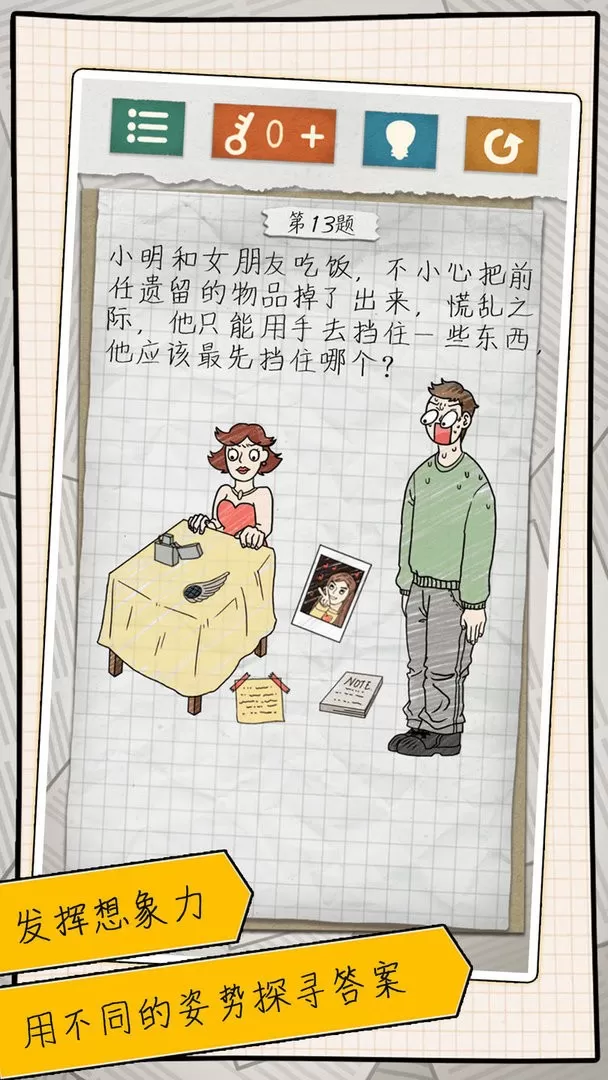 0 +
第13题
小明和女朋友吃饭，不小心把前
任遗留的物品掉了出来，慌乱之
际，他只能用手去挡住一些东西，
他应该最先挡住哪个？
NOTE
发挥想象力
用不同的姿势探寻答案